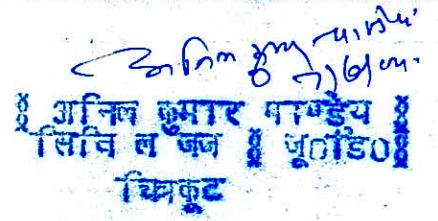 अनिल कुमार पाण्डेय
॥ अनिल कुमार पाण्डेय ॥
सिविल जज ॥ जू०डि०॥
चित्रकूट